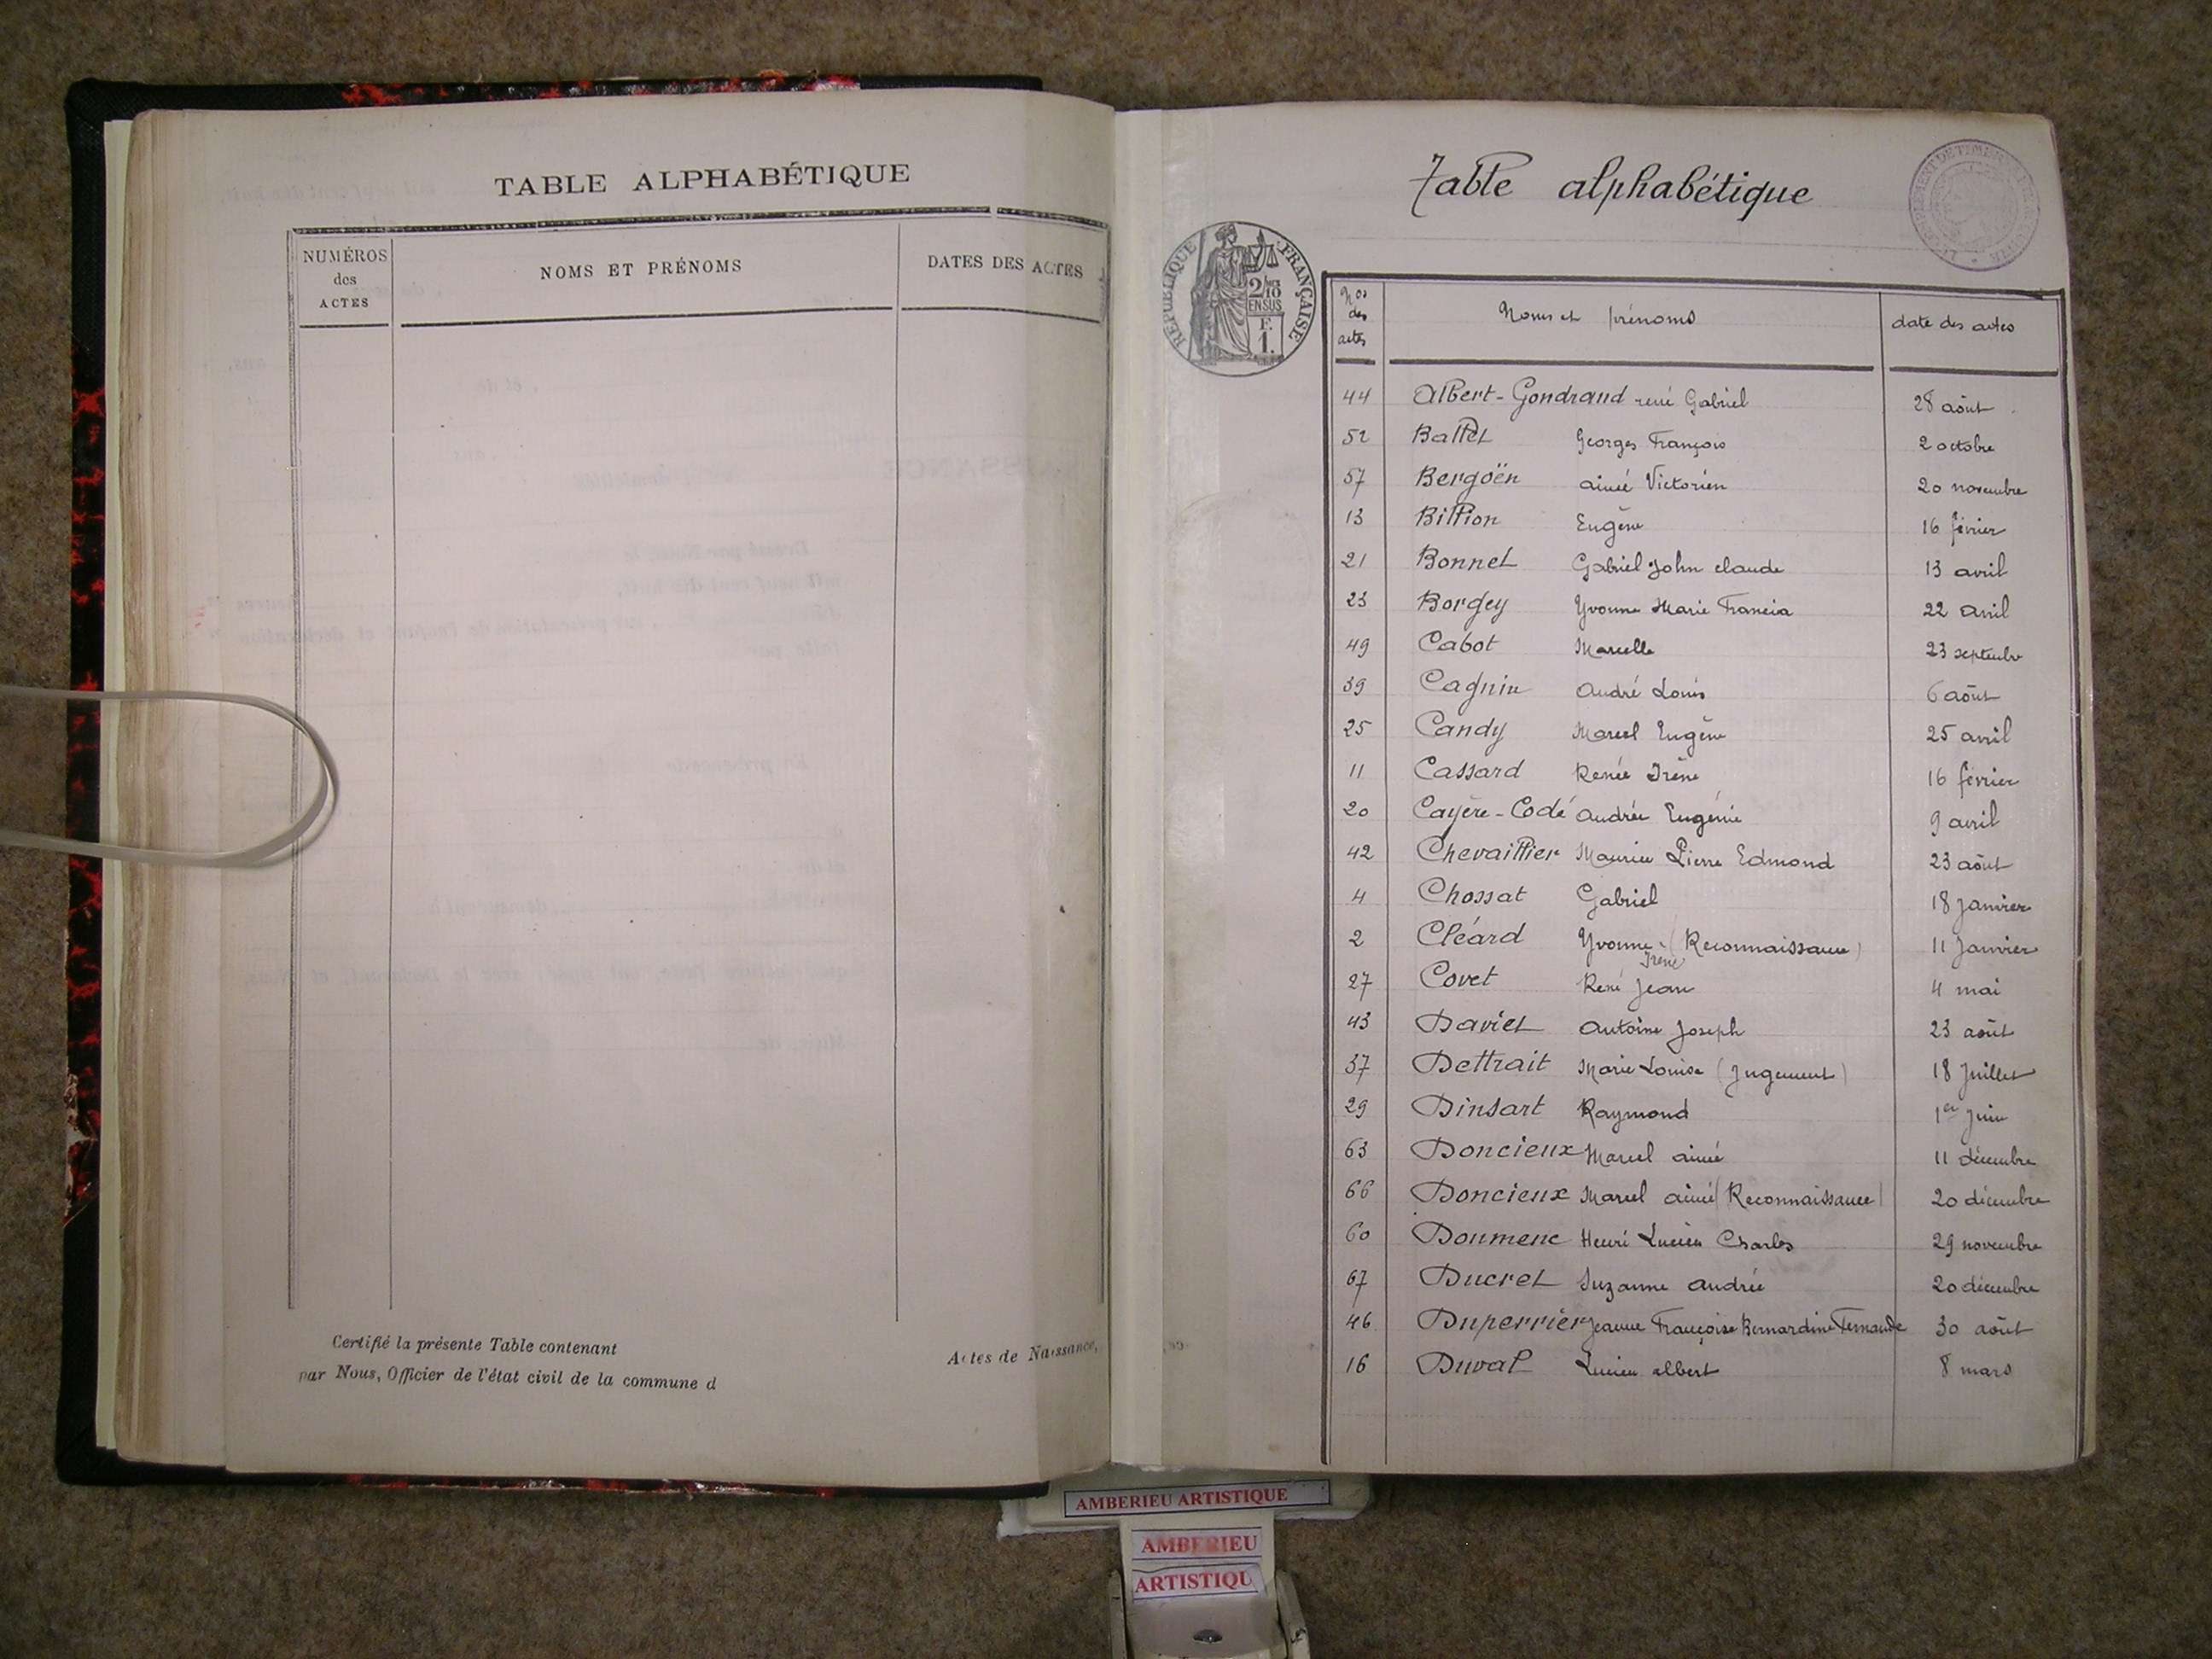 TABLE ALPHABÉTIQUE
NUMÉROS
des
ACTES
NOMS ET PRÉNOMS
DATES DES ACTES
Certifié la présente Table contenant
Actes de Naissance,
par Nous, Officier de l'état civil de la commune d
Table alphabétique
RÉPUBLIQUE FRANÇAISE
2/10
EN SUS
F.
1.
Nos
des
actes
Noms et prénoms
date des actes
44 Albert-Gondrand rené Gabriel 28 août
52 Ballet Georges François 2 octobre
57 Bergoën aimé Victorien 20 novembre
13 Billion Eugène 16 février
21 Bonnet Gabriel John claude 13 avril
23 Borgey Yvonne Marie Francia 22 avril
49 Cabot Marcelle 23 septembre
39 Cagnin André Louis 6 août
25 Candy Marcel Eugène 25 avril
11 Cassard Renée Irène 16 février
20 Cayère-Codé andrée Eugénie 9 avril
42 Chevaillier Maurice Pierre Edmond 23 août
4 Chossat Gabriel 18 Janvier
2 Cléard Yvonne (Reconnaissance) 11 Janvier
Irène
27 Covet René Jean 4 mai
43 Daviet Antoine Joseph 23 août
37 Dettrait Marie Louise (Jugement) 18 Juillet
29 Dinsart Raymond 1er Juin
63 Doncieux Marcel aimé 11 décembre
66 Doncieux Marcel aimé (Reconnaissance) 20 décembre
60 Doumenc Henri Lucien Charles 29 novembre
67 Ducret Suzanne andrée 20 décembre
46 Duperrier Jeanne Françoise Bernardine Fernande 30 août
16 Duval Lucien albert 8 mars
AMBERIEU ARTISTIQUE
AMBERIEU
ARTISTIQU